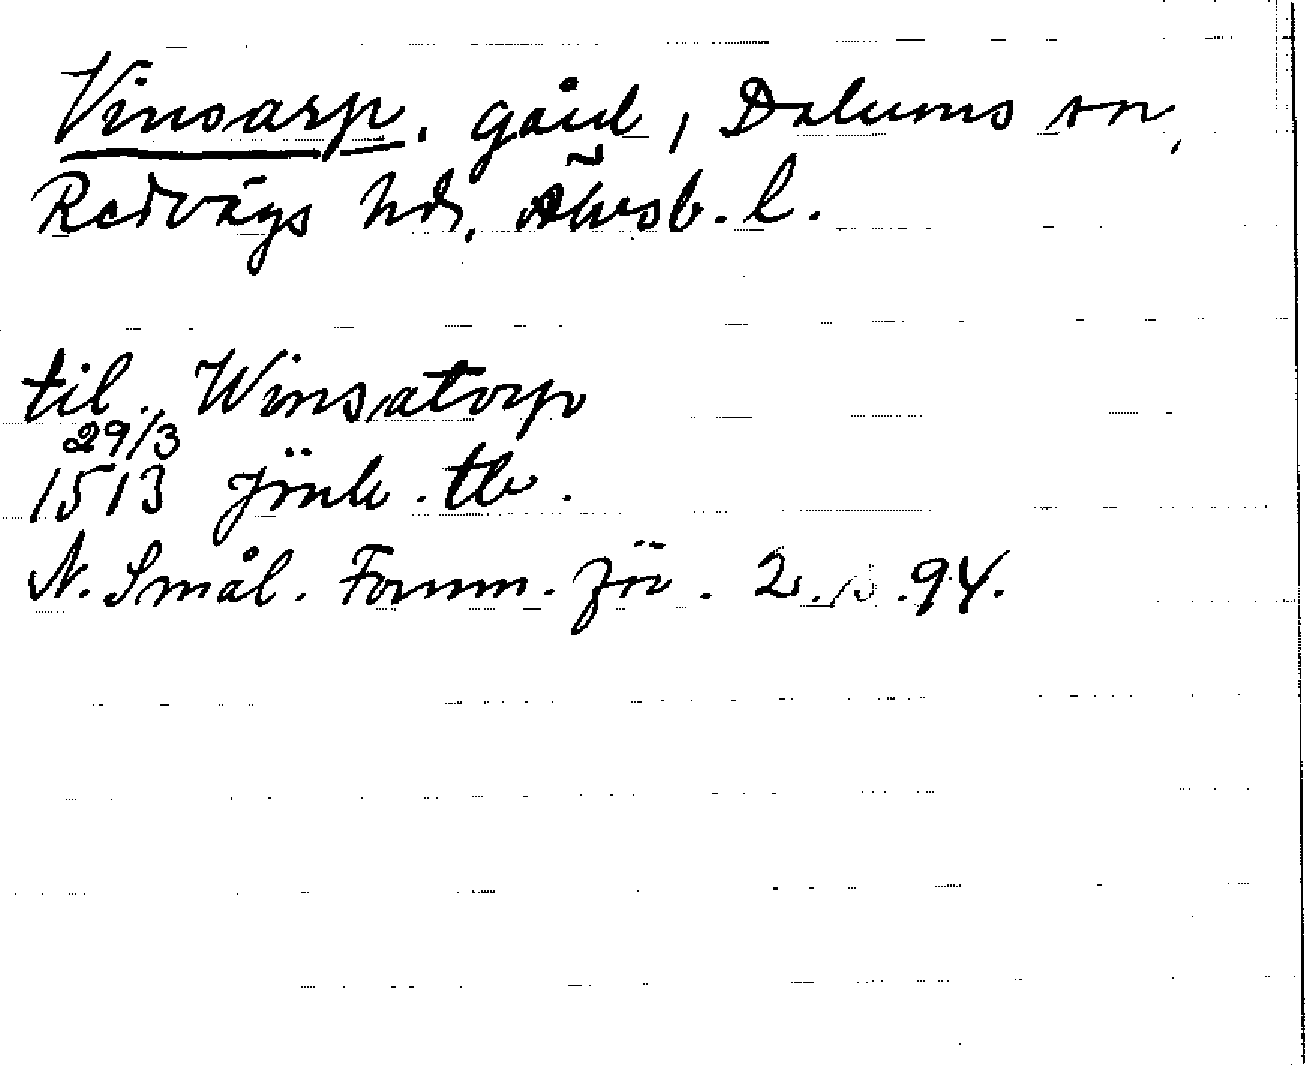 Vinsarp. gård, Dalums sn,
Redvägs hd, Älvsb. l.
til Winsatorp
29/3
1513 Jönk. tb.
N. Smål. Fornm.för. 2. s. 94.